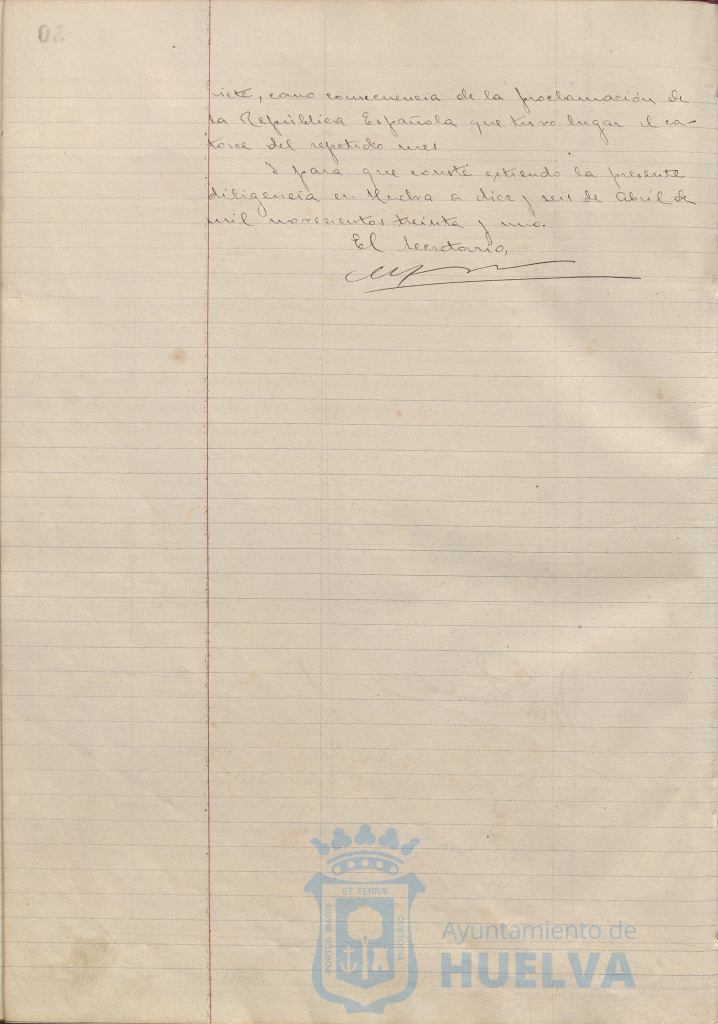 siete, como consecuencia de la proclamación de
la República Española que tuvo lugar el ca-
torce del repetido mes
Y para que conste extiendo la presente
diligencia en Huelva a diez y seis de Abril de
mil novecientos treinta y uno.
El Secretario,
PORTUS MARIS
ET TERRÆ
CUSTODIA
Ayuntamiento de
HUELVA